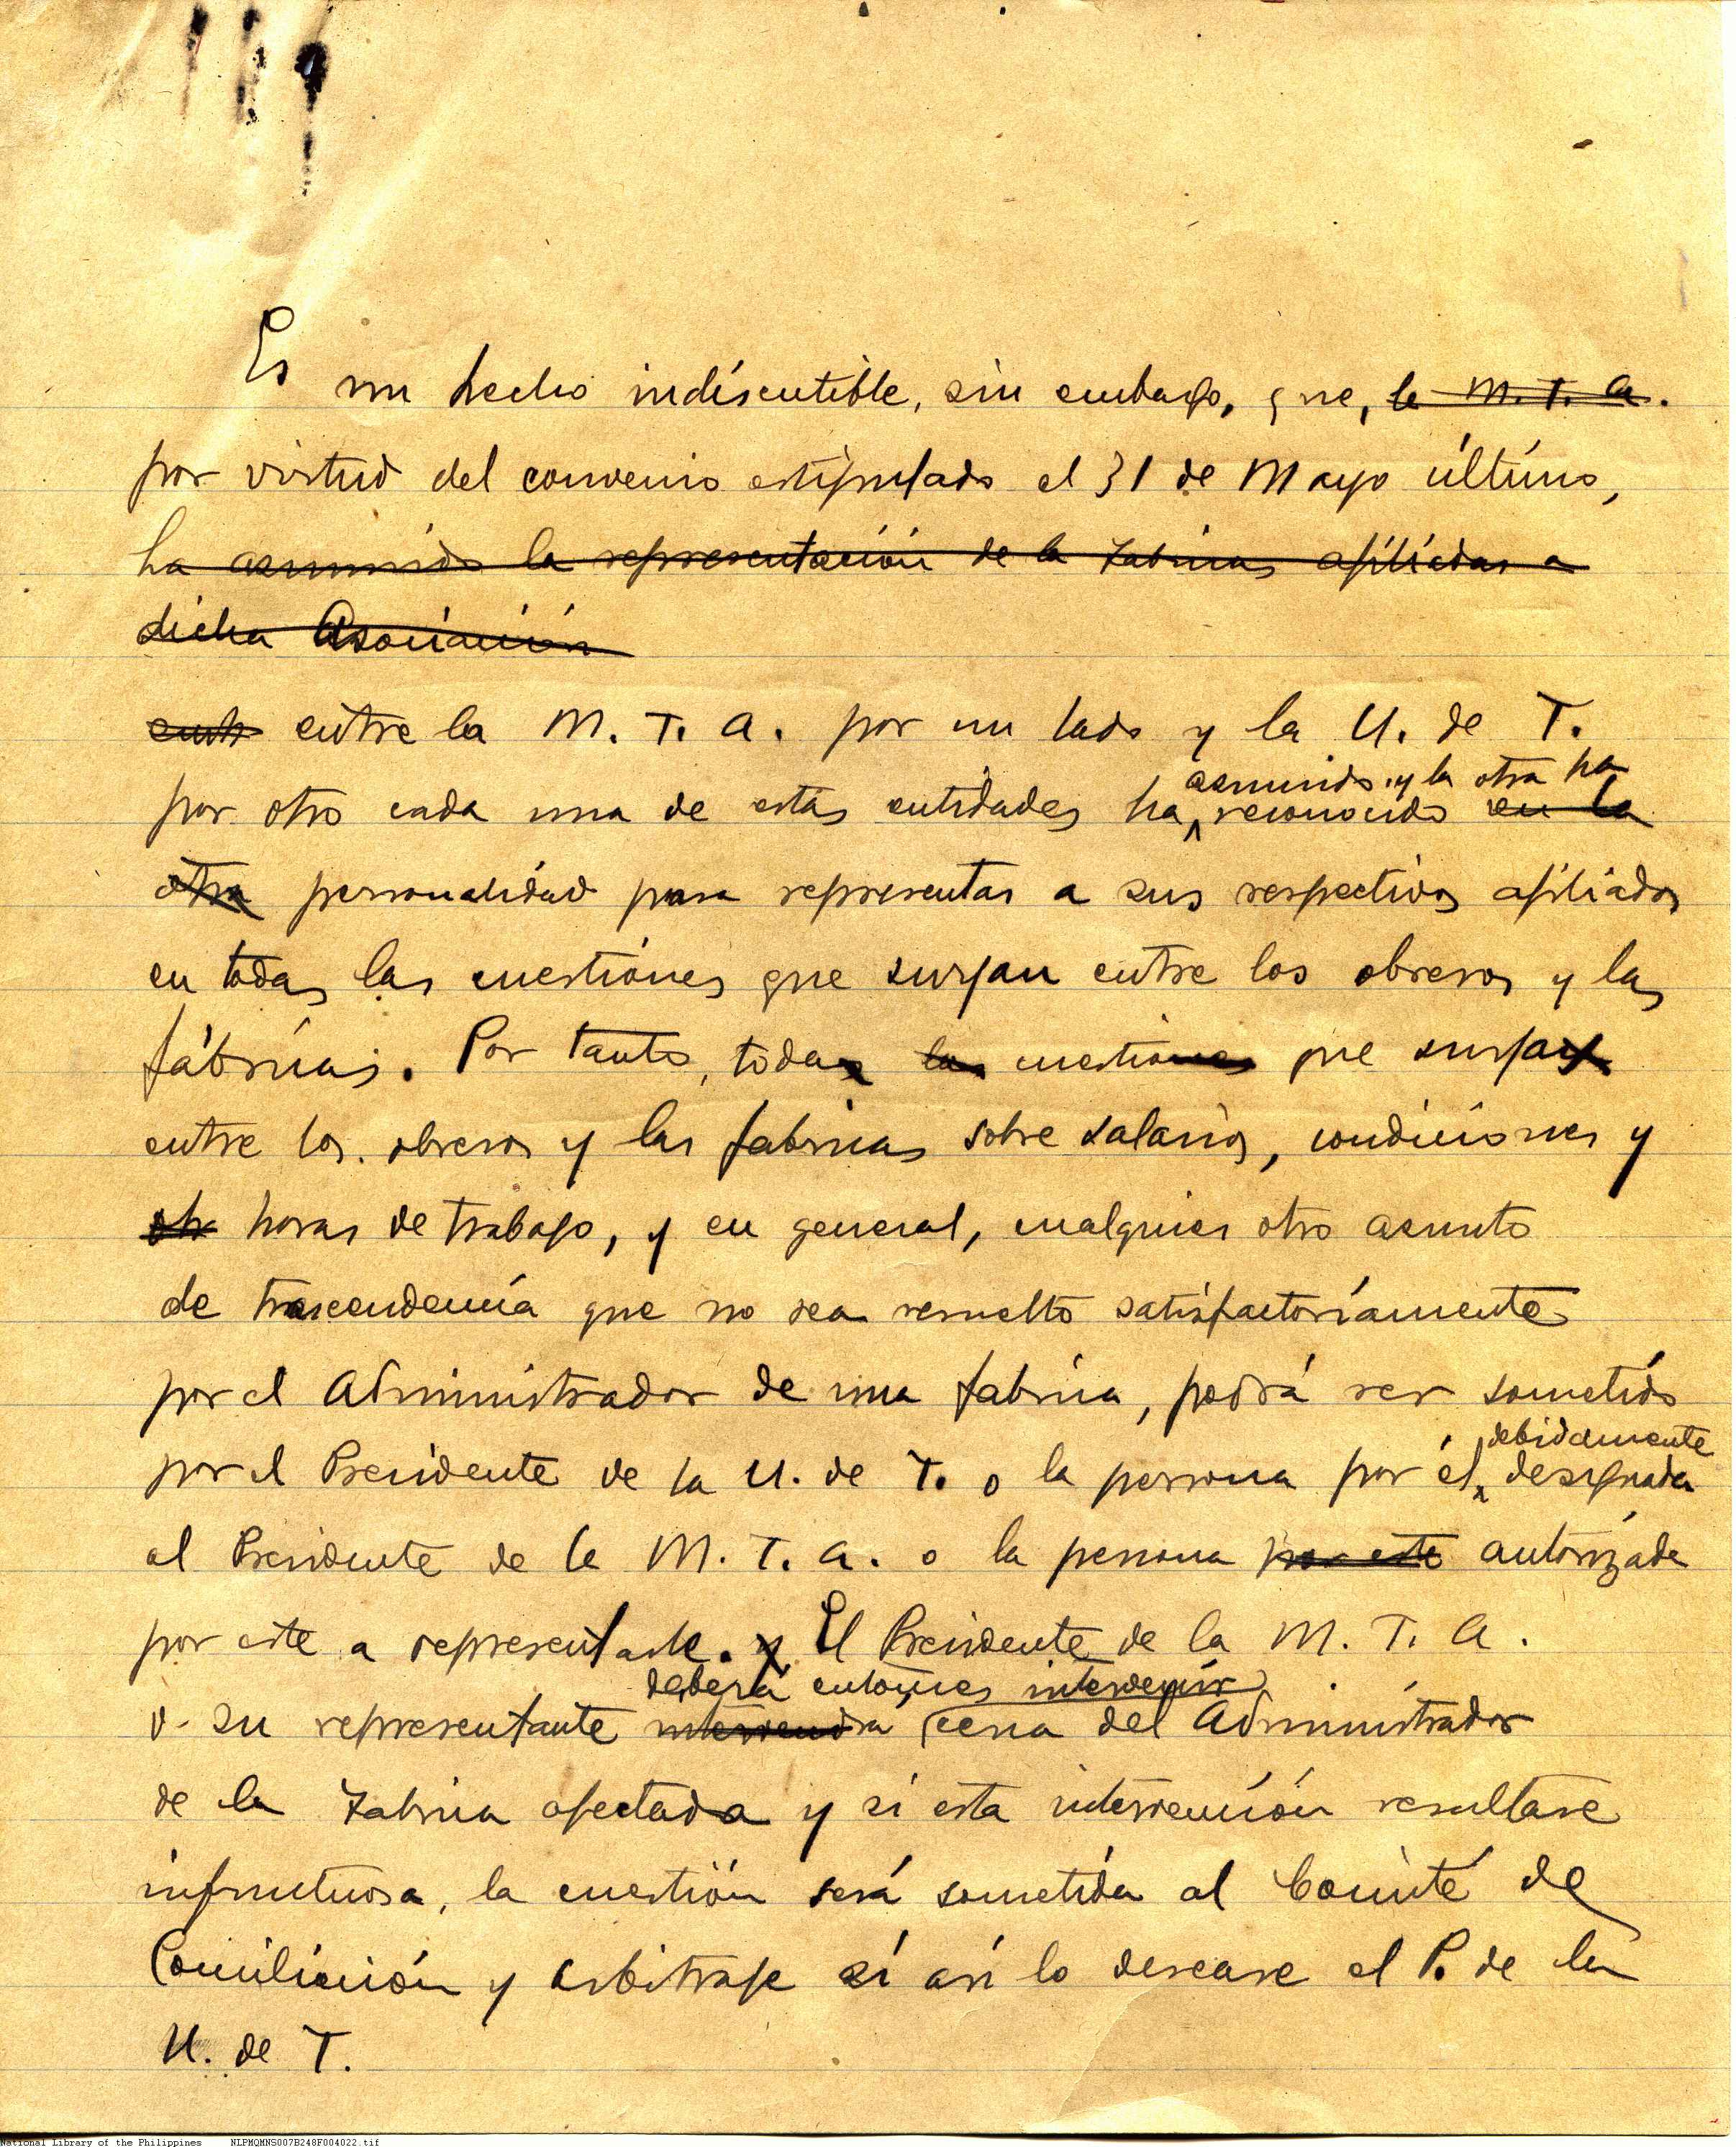 Es un hecho indiscutible, sin embargo, que, la M. T. A.
por virtud del convenio estipulado el 31 de Mayo último,
ha asumido la representación de la fabricas afiliadas a
dicha Asociación
entre la M. T. A. por un lado y la U. de T.
asumido y la otra ha
por otro cada una de estas entidades ha reconocido en la
otra personalidad para representar a sus respectivos afiliados
en todas las cuestiones que surjan entre los obreros y las
fábricas. Por tanto, todas las cuestiones que surjan
entre los obreros y las fabricas sobre salarios, condiciones y
horas de trabajo, y en general, cualquier otro asunto
de trascendencia que no sea resuelto satisfactoriamente
por el Administrador de una fabrica, podrá ser sometido
debidamente
por el Presidente de la U. de T. o la persona por él designada
al Presidente de la M. T. A. o la persona por este autorizada
por este a representarle. y El Presidente de la M. T. A.
deberá entonces intervenir
o su representante intervendra cerca del Administrador
de la fabrica afectada y si esta intervención resultase
infructuosa, la cuestión será sometida al Comité de
Conciliación y arbitraje si asi lo desease el P. de la
U. de T.
National Library of the Philippines NLPMQMNS007B248F004022.tif